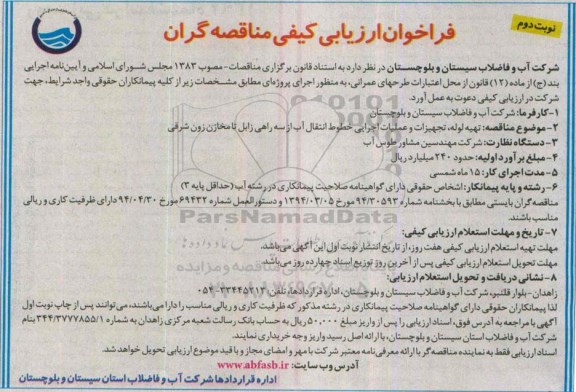 نوبت دوم
فراخوان ارزیابی کیفی مناقصه گران
شرکت آب و فاضلاب سیستان و بلوچستان در نظر دارد به استناد قانون برگزاری مناقصات- مصوب ۱۳۸۳ مجلس شورای اسلامی و آیین‌نامه اجرایی
بند (ج) از ماده (۱۲) قانون از محل اعتبارات طرحهای عمرانی، به منظور اجرای پروژه‌ای مطابق مشخصات زیر از کلیه پیمانکاران حقوقی واجد شرایط، جهت
شرکت در ارزیابی کیفی دعوت به عمل آورد.
۱-کارفرما: شرکت آب و فاضلاب سیستان و بلوچستان
۲-موضوع مناقصه: تهیه لوله، تجهیزات و عملیات اجرایی خطوط انتقال آب از سه راهی زابل تا مخازن زون شرقی
۳-دستگاه نظارت: شرکت مهندسین مشاور طوس آب
۴-مبلغ برآورد اولیه: حدود ۲۴۰ میلیارد ریال
۵-مدت اجرای کار: ۱۵ ماه شمسی
۶-رشته و پایه پیمانکار: اشخاص حقوقی دارای گواهینامه صلاحیت پیمانکاری در رشته آب (حداقل پایه ۳)
مناقصه گران بایستی مطابق با بخشنامه شماره ۹۴/۳۰۵۹۳ مورخ ۱۳۹۴/۰۳/۰۵ و دستورالعمل شماره ۶۹۴۳۲ مورخ ۹۴/۰۴/۳۰ دارای ظرفیت کاری و ریالی
مناسب باشند.
۷- تاریخ و مهلت استعلام ارزیابی کیفی:
مهلت تهیه استعلام ارزیابی کیفی هفت روز، از تاریخ انتشار نوبت اول این آگهی می‌باشد.
مهلت تحویل استعلام ارزیابی کیفی پس از آخرین روز توزیع اسناد چهارده روز می‌باشد.
۸-نشانی دریافت و تحویل استعلام ارزیابی:
زاهدان- بلوار قلنبر، شرکت آب و فاضلاب سیستان و بلوچستان، اداره قراردادها، تلفن: ۳۳۴۴۵۲۱۳-۰۵۴
لذا پیمانکاران حقوقی دارای گواهینامه صلاحیت پیمانکاری در رشته مذکور که ظرفیت کاری و ریالی مناسب را دارا می‌باشند، می‌توانند پس از چاپ نوبت اول
آگهی با مراجعه به آدرس فوق، اسناد ارزیابی را پس از واریز مبلغ ۵۰۰,۰۰۰ ریال به حساب بانک رسالت شعبه مرکزی زاهدان به شماره ۳۴۴/۳۷۷۷۸۵۵/۱ بنام
شرکت آب و فاضلاب استان سیستان و بلوچستان، با ارائه اصل رسید واریز وجه خریداری نمایند.
اسناد ارزیابی فقط به نماینده مناقصه گر با ارائه معرفی‌نامه معتبر شرکت با مهر و امضای مجاز و با قید موضوع ارزیابی تحویل خواهد شد.
آدرس وب سایت: www.abfasb.ir
اداره قراردادها شرکت آب و فاضلاب استان سیستان و بلوچستان
ParsNamadData